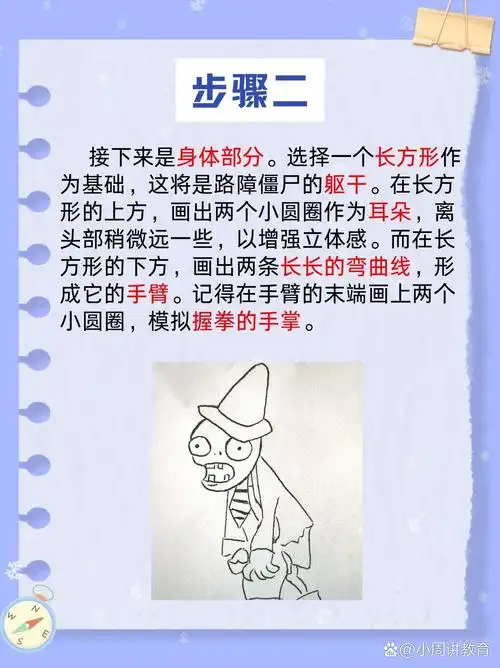 步骤二
接下来是身体部分。选择一个长方形作
为基础，这将是路障僵尸的躯干。在长方
形的上方，画出两个小圆圈作为耳朵，离
头部稍微远一些，以增强立体感。而在长
方形的下方，画出两条长长的弯曲线，形
成它的手臂。记得在手臂的末端画上两个
小圆圈，模拟握拳的手掌。
N
W
E
S
@小周讲教育